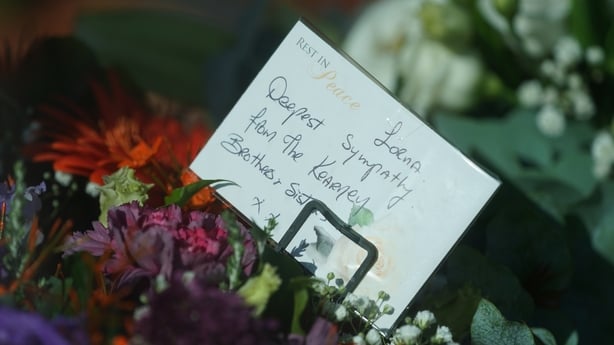 REST IN
Peace
Lorna
Deepest Sympathy
from The Kearney
Brothers + Sist
x x